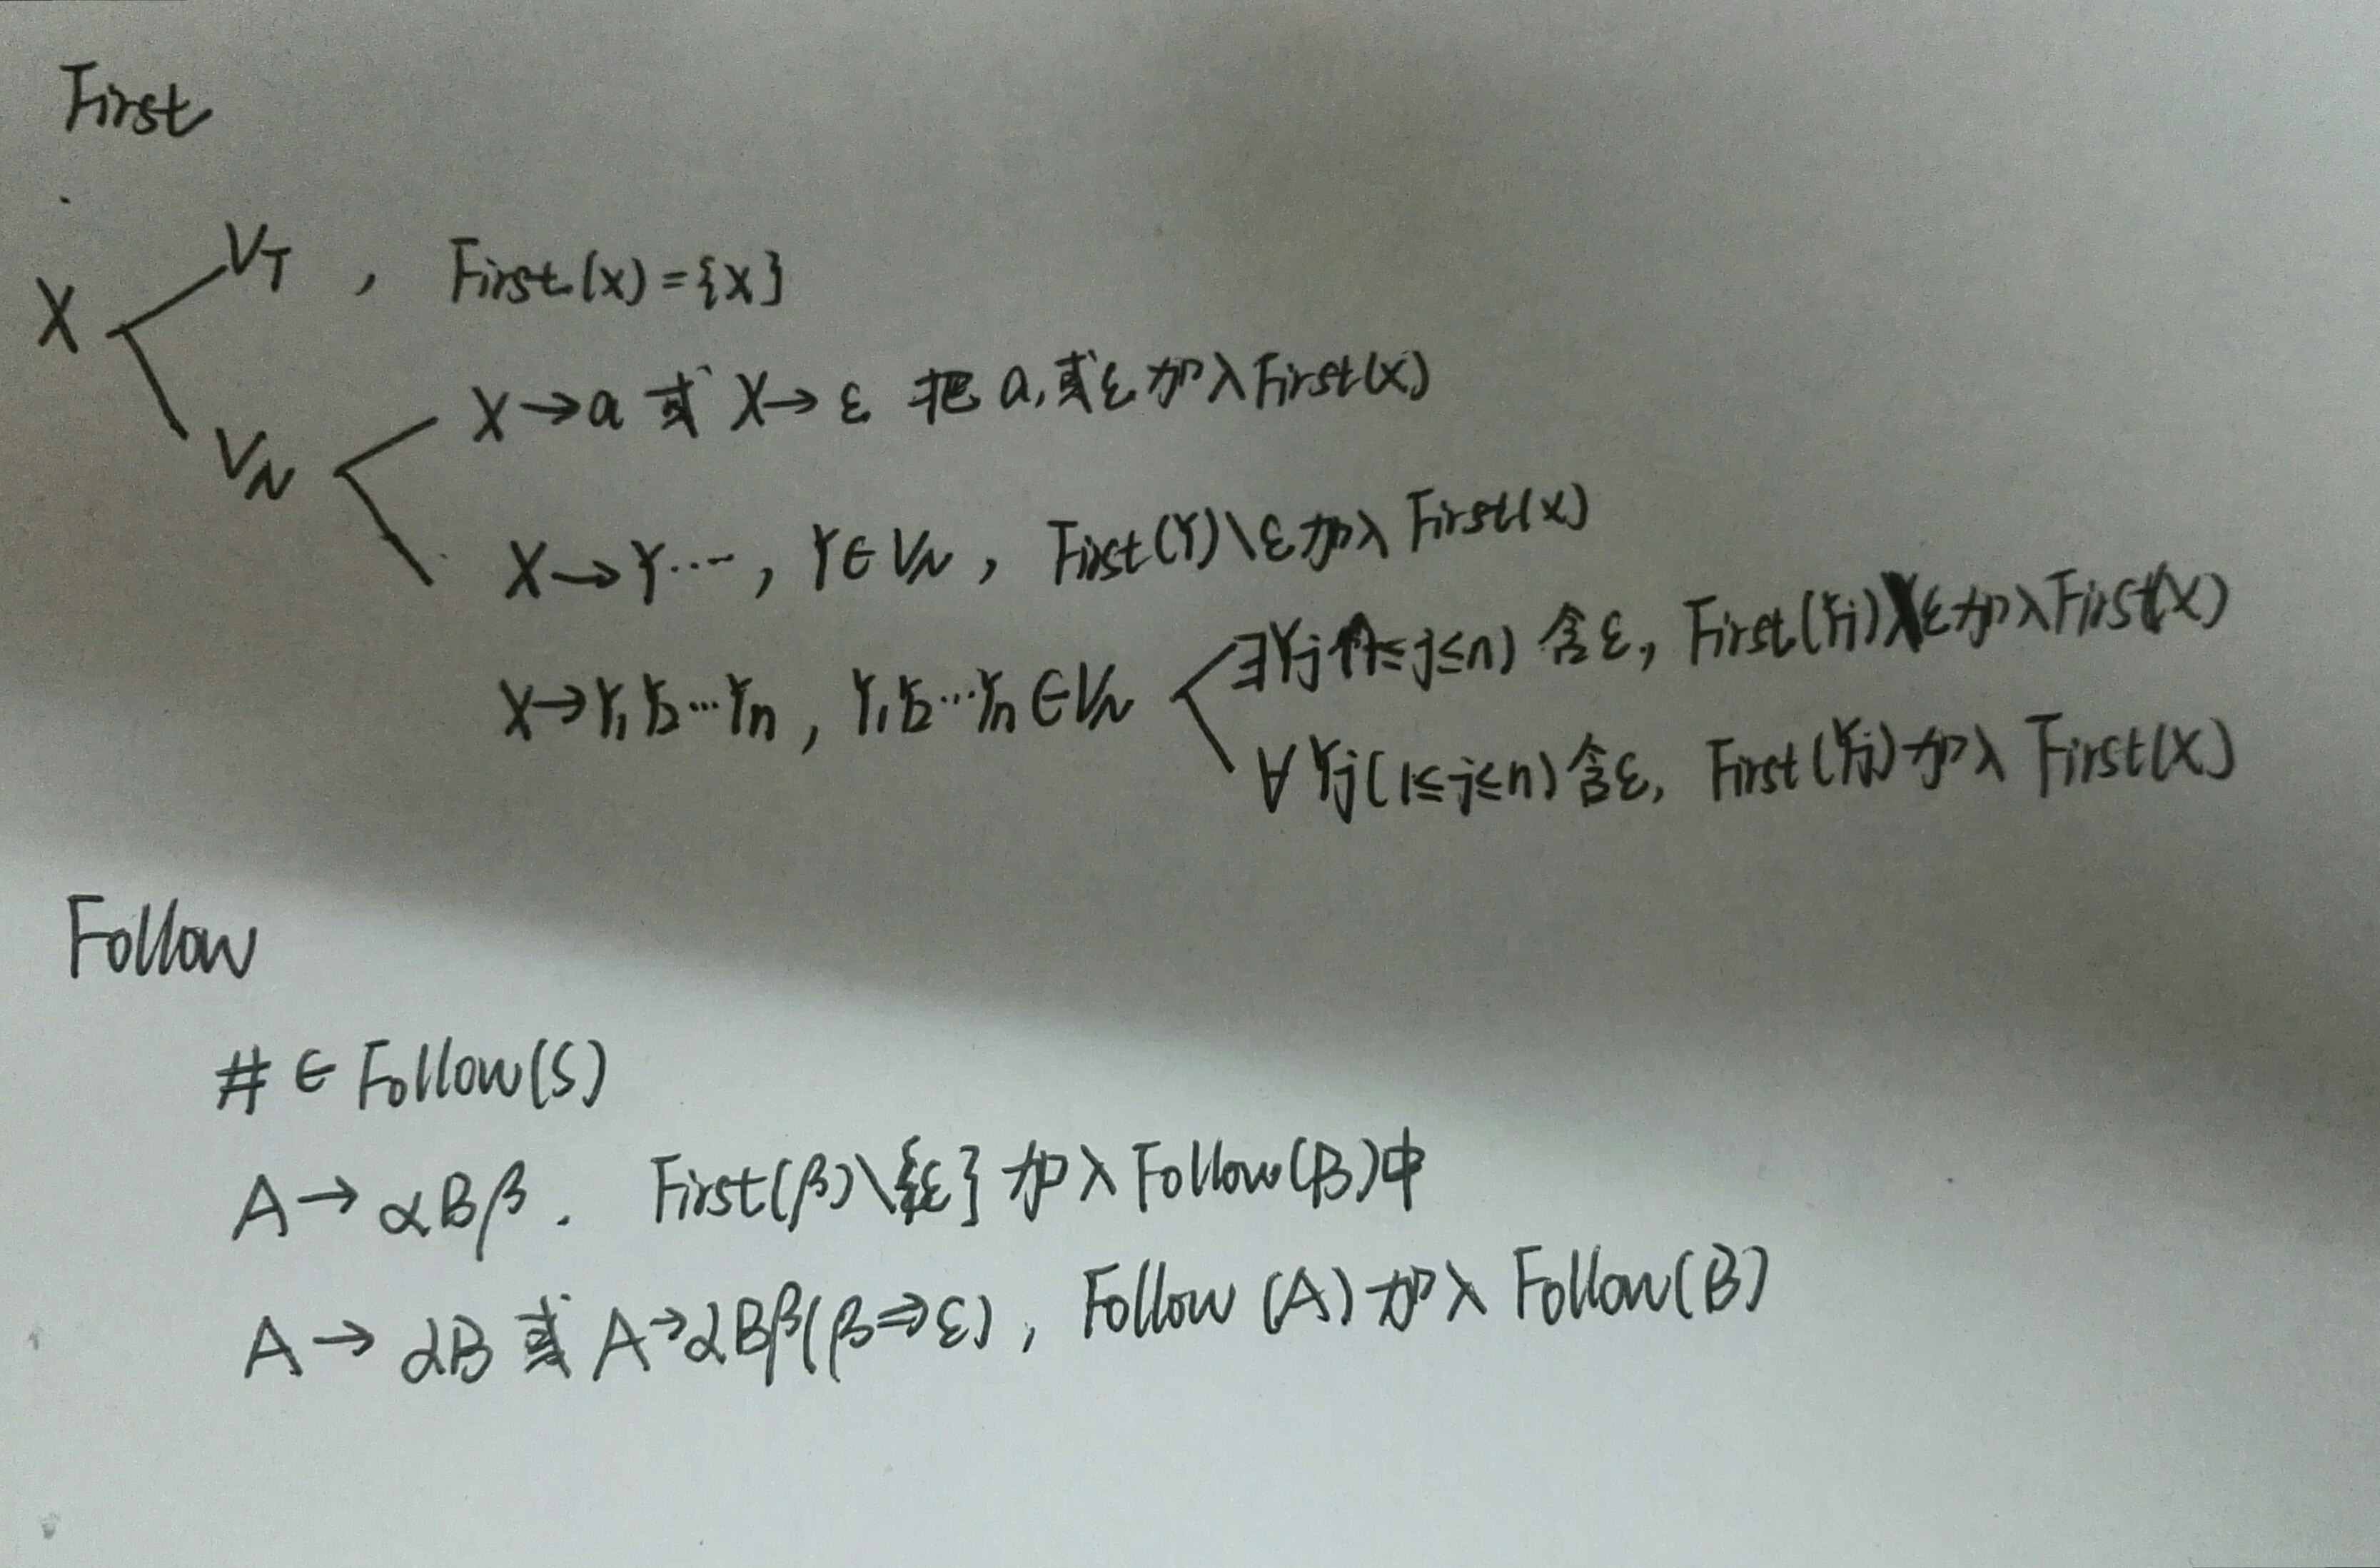 First
X V_T , First(X)={X}
V_N X→a 或 X→ε 把 a,或ε 加入First(X)
X→Y…, Y∈V_N, First(Y)\ε加入 First(X)
X→Y₁Y₂…Yₙ, Y₁Y₂…Yₙ∈V_N
∃Yj(1≤j≤n) 含ε, First(Yj)\ε加入First(X)
∀Yj(1≤j≤n)含ε, First(Yj)加入 First(X)
Follow
# ∈ Follow(S)
A→αBβ. First(β)\{ε}加入Follow(B)中
A→αB 或 A→αBβ(β⇒ε), Follow(A)加入 Follow(B)